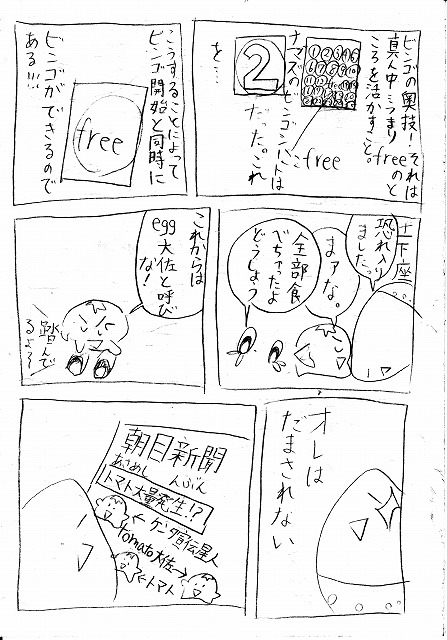 ビンゴの奥技!それは
真ん中…つまりfreeのと
ころを活かすこと。
①②③④⑤
free
ナマズのビンゴシートは
2
だった。これ
を…
こうすることによって
ビンゴ開始と同時に
free
ビンゴができるので
ある!!!
土下座
恐れ入り
ました。
まァな。
全部食
べちゃったよ
どうしよう
これからは
egg
大佐と呼び
な!
踏んで
るよ〜
オレは
だまされない
朝日新聞
あさめし んぶん
トマト大量発生!?
←ケンタ宣伝星人
tomato大佐→
←トマト